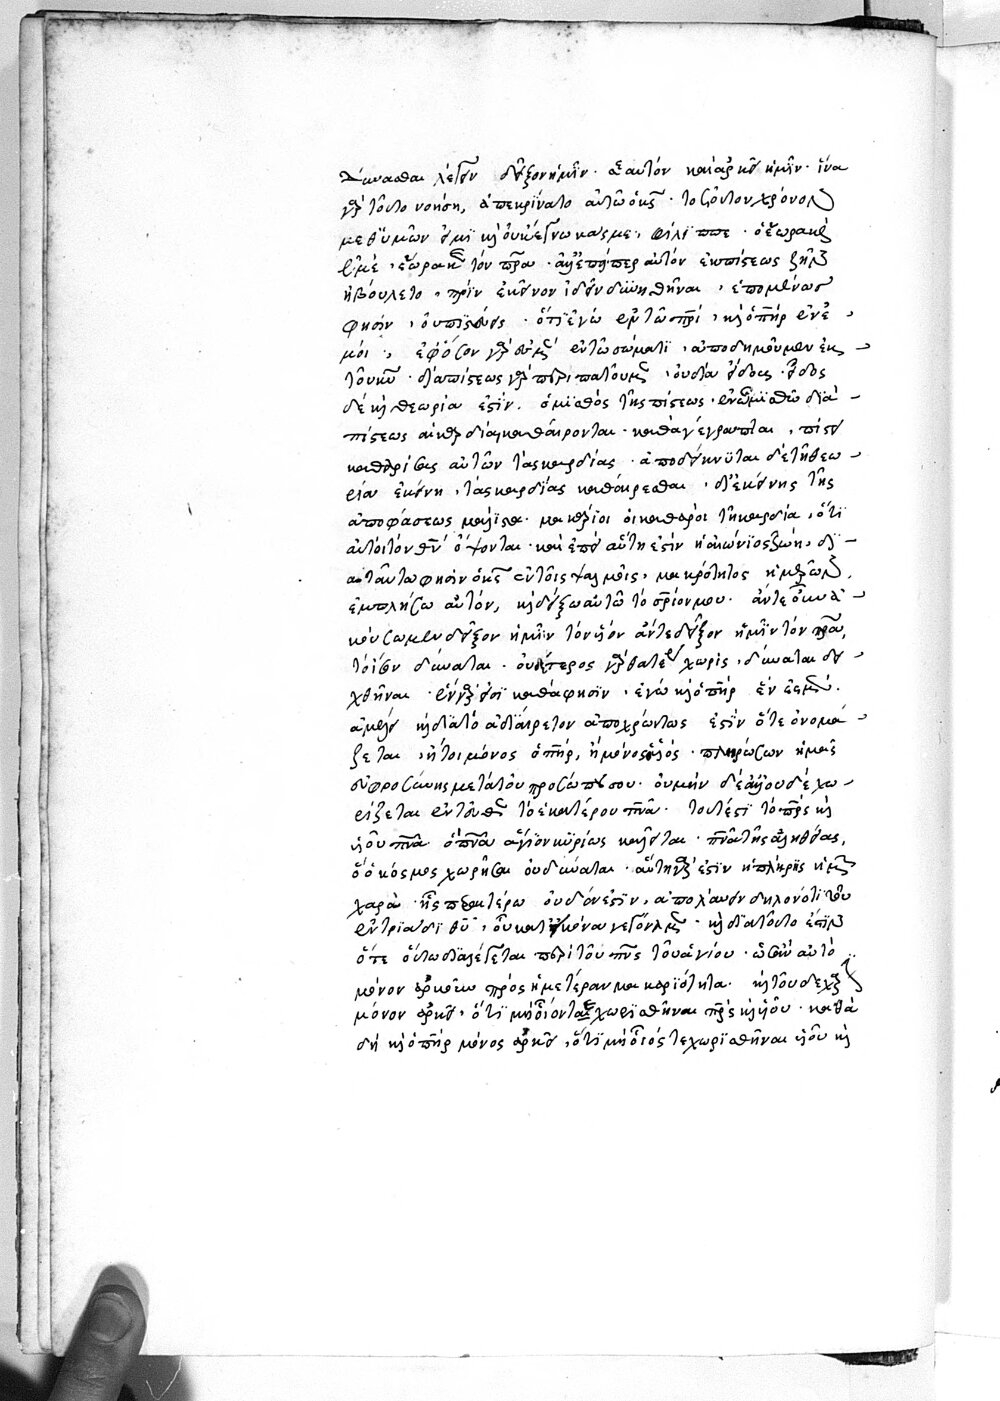 δύνασθαι λέγειν δεῖξον ἡμῖν σεαυτόν καὶ ἀρκεῖ ἡμῖν · ἵνα
γὰρ τοῦτο νοήση, ἀπεκρίνατο αὐτῶ ὁ κς · τοσοῦτον χρόνον
μεθ' ὑμῶν εἰμὶ κ οὐκ ἔγνωκάς με, φίλιππε · ὁ ἑωρακὼς
ἐμέ, ἑώρακε τὸν πρα · ἀλλ' ἐπείπερ αὐτόν ἐκ πίστεως ζῆν
ἠβούλετο, πρὶν ἐκεῖνον ἰδεῖν δυνηθῆναι, ἑπομένως
φησὶν, οὐ πιστεύεις · ὅτι ἐγὼ ἐν τῶ πρι, κ ὁ πηρ ἐν ἐ
μοι · ἐφόσον γὰρ ἐσμὲν ἐν τῶ σώματι, ἀποδημοῦμεν ἐκ
τοῦ κυ · διαπίστεως γὰρ περιπατοῦμεν, οὐ δια εἴδους · εἶδος
δὲ κ θεωρία ἐστὶν. ὁ μισθὸς τῆς πίστεως · ἐν ὧ μισθῶ διὰ
πίστεως αἱ καρδίαι καθαίρονται · καθὰ γέγραπται, πίστει
καθαρίσας αὐτῶν τὰς καρδίας · ἀποδείκνυται δὲ τῆ θεω
ρία ἐκείνη, τὰς καρδίας καθαίρεσθαι · δι' ἐκείνης τῆς
ἀποφάσεως μάλιστα · μακάριοι οἱ καθαροὶ τῆ καρδία, ὅτι
αὐτοὶ τὸν θν ὄψονται · καὶ ἐπεὶ αὕτη ἐστὶν ἡ αἰώνιος ζωή, δι
α ταῦτα φησὶν ὁ κς ἐν τοῖς ψαλμοῖς, μακρότητος ἡμερῶν
ἐμπλήσω αὐτόν, κ δείξω αὐτῶ τὸ σριον μου · ἄντε οὖν ἀ
κούσωμεν δεῖξον ἡμῖν τὸν υἱόν ἄντε δεῖξον ἡμῖν τὸν πρα,
δύναται · οὐδέτερος γὰρ θατέρου χωρίς, δύναται δει
χθῆναι · ἓν γάρ εἰσὶ καθά φησιν, ἐγὼ κ ὁ πηρ ἕν ἐσμεν.
ἀμέλει κ διὰ τὸ ἀδιαίρετον ἀποχρώντως ἐστὶν ὅτε ὀνομά
ζεται, ἤτοι μόνος ὁ πηρ, ἢ μόνος ὁ υἱός · πληρώσων ἡμᾶς
εὐφροσύνης μετὰ τοῦ προσώπου σου · οὐ μὴν δὲ ἀλλ' οὐδὲ χω
ρίζεται ἐντεῦθεν τὸ ἑκατέρου πνα · τουτέστι τὸ πρς κ
υἱοῦ πνα ὁ πνα ἅγιον κυρίως καλεῖται · πνα τῆς ἀληθείας,
ὃ ὁ κόσμος χωρῆσαι οὐ δύναται · αὕτη γάρ ἐστιν ἡ πλήρης ἡμῶν
χαρὰ ἧς περαιτέρω οὐδὲν ἐστιν, ἀπολαύειν δηλονότι τοῦ
ἐν τριάδι θυ, οὗ κατ' εἰκόνα γεγόναμεν · κ διὰ τοῦτο ἐστὶν
ὅτε οὕτω διαλέγεται περὶ τοῦ πνς τοῦ ἁγίου · ὡσὰν αὐτὸ
μόνον ἀρκοίη πρὸς ἡμετέραν μακαριότητα ·
μόνον ἀρκεῖ, ὅτι μὴ οἷόν τε χωρισθῆναι πρς κ υἱοῦ · καθὰ
δὴ κ ὁ πηρ μόνος ἀρκεῖ, ὅτι μὴ οἷός τε χωρισθῆναι υἱοῦ κ